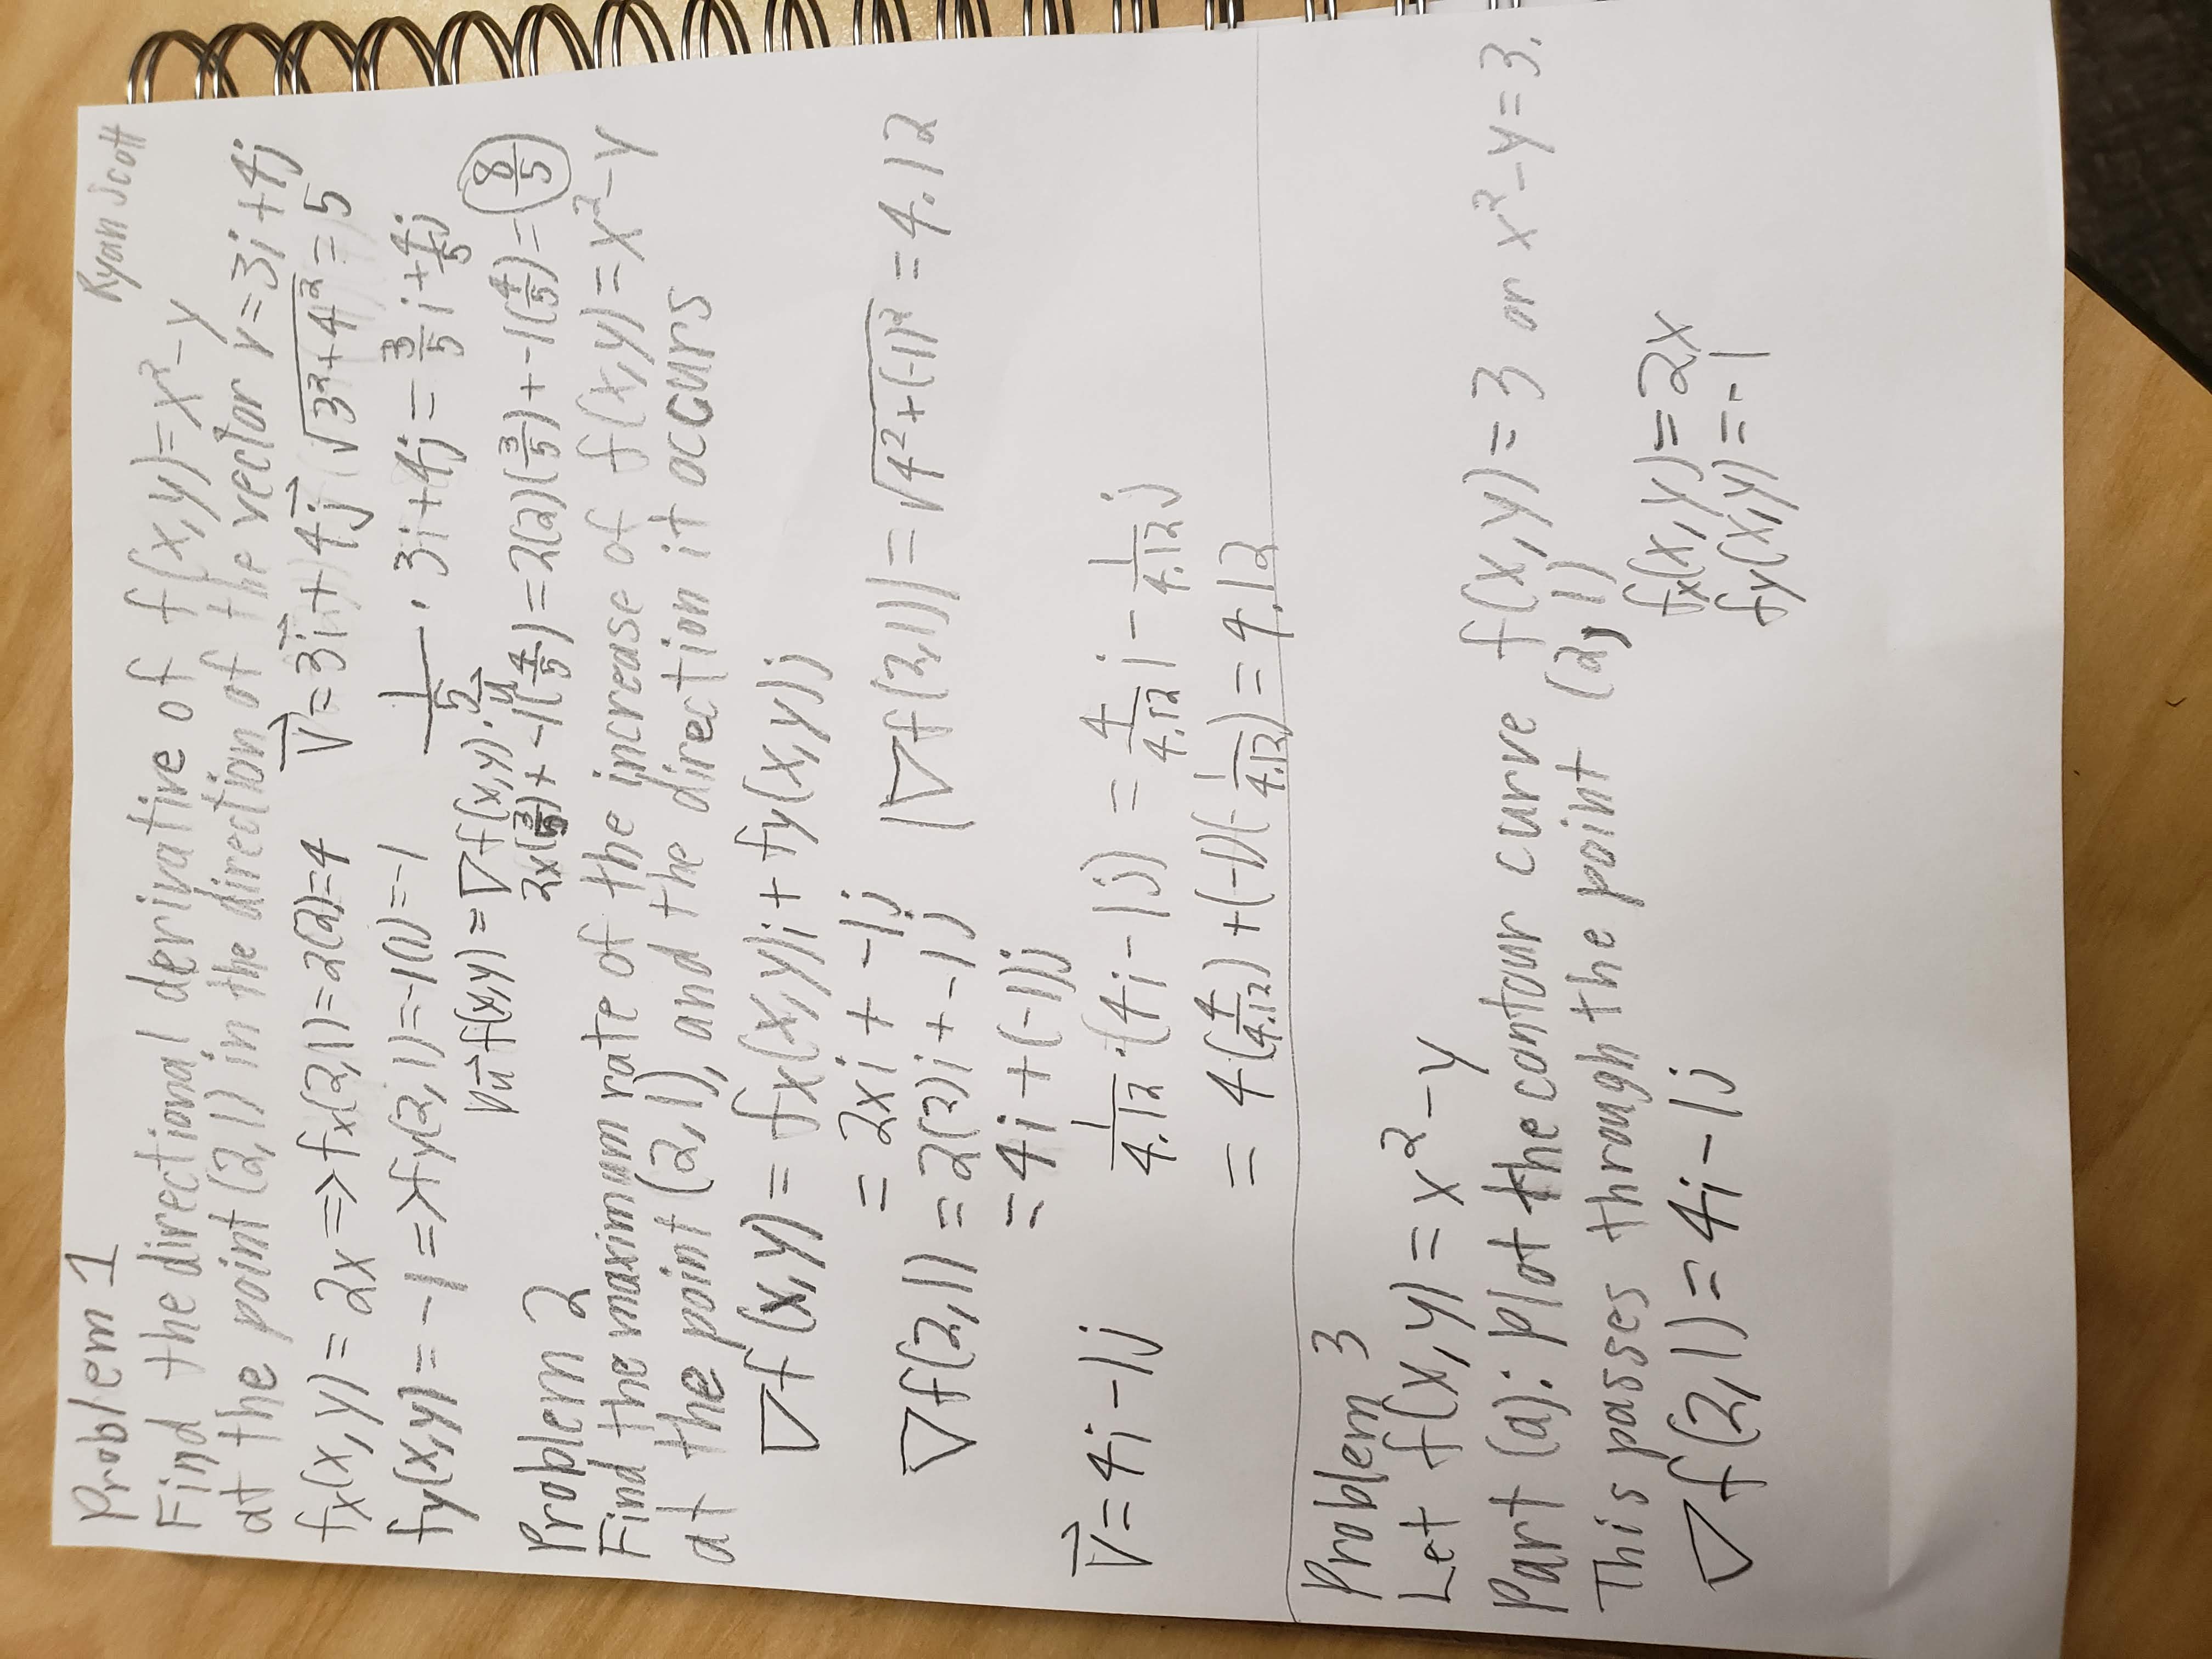 Problem 1
Ryan Scott
Find the directional derivative of f(x,y)=x²-y
at the point (2,1) in the direction of the vector v=3i+4j
fx(x,y)=2x=>fx(2,1)=2(2)=4
v⃗=3i⃗+4j⃗ √(3²+4²)=5
fy(x,y)=-1=>fy(2,1)=-1(1)=-1
1/5 · 3i+4j=3/5i+4/5j
Du⃗ f(x,y)=∇f(x,y)·u⃗
2x(3/5)+-1(4/5)=2(2)(3/5)+-1(4/5)=8/5
Problem 2
Find the maximum rate of the increase of f(x,y)=x²-y
at the point (2,1), and the direction it occurs
∇f(x,y)=fx(x,y)i+fy(x,y)j
=2xi+-1j
|∇f(2,1)|=√(4²+(-1)²)=4.12
∇f(2,1)=2(2)i+-1j
=4i+(-1)j
v⃗=4i-1j
1/4.12·(4i-1j)=4/4.12i-1/4.12j
=4(4/4.12)+(-1)(-1/4.12)=4.12
Problem 3
Let f(x,y)=x²-y
Part (a): Plot the contour curve f(x,y)=3 or x²-y=3.
This passes through the point (2,1)
fx(x,y)=2x
∇f(2,1)=4i-1j
fy(x,y)=-1